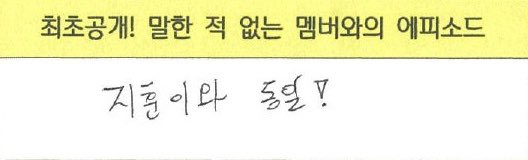 최초공개! 말한 적 없는 멤버와의 에피소드
지훈이와 동일!